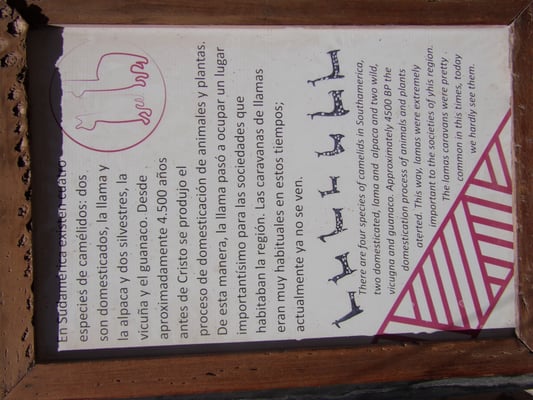 En Sudamérica existen cuatro
especies de camélidos: dos
son domesticados, la llama y
la alpaca y dos silvestres, la
vicuña y el guanaco. Desde
aproximadamente 4.500 años
antes de Cristo se produjo el
proceso de domesticación de animales y plantas.
De esta manera, la llama pasó a ocupar un lugar
importantísimo para las sociedades que
habitaban la región. Las caravanas de llamas
eran muy habituales en estos tiempos;
actualmente ya no se ven.
There are four species of camelids in Southamerica,
two domesticated, lama and alpaca and two wild,
vicugna and guanaco. Approximately 4500 BP the
domestication process of animals and plants
aterted. This way, lamas were extremely
important to the societies of yhis region.
The lamas caravans were pretty
common in this times, today
we hardly see them.